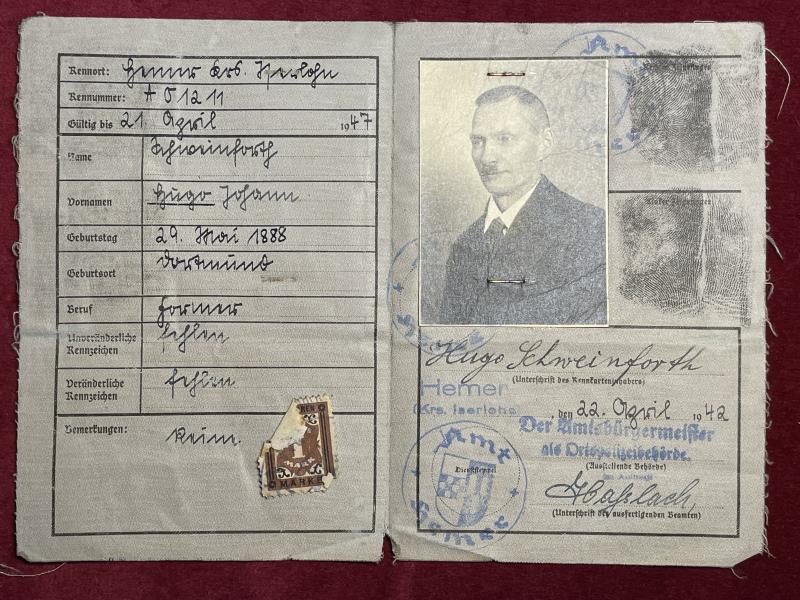 Kennort: Hemer Krs. Iserlohn
Kennummer: A 01211
Gültig bis 21. April 1947
Name Schweinforth
Vornamen Hugo Johann
Geburtstag 29. Mai 1888
Geburtsort Dortmund
Beruf Former
Unveränderliche Kennzeichen fehlen
Veränderliche Kennzeichen fehlen
Bemerkungen: Keine.
1
MARK
MARKE
Amt
Hemer
Hugo Schweinforth
(Unterschrift des Kennkarteninhabers)
Hemer
(Krs. Iserlohn
, den 22. April 1942
Der Amtsbürgermeister
als Ortspolizeibehörde.
(Ausstellende Behörde)
Amt
Dienststempel
Hemer
(Unterschrift des ausfertigenden Beamten)